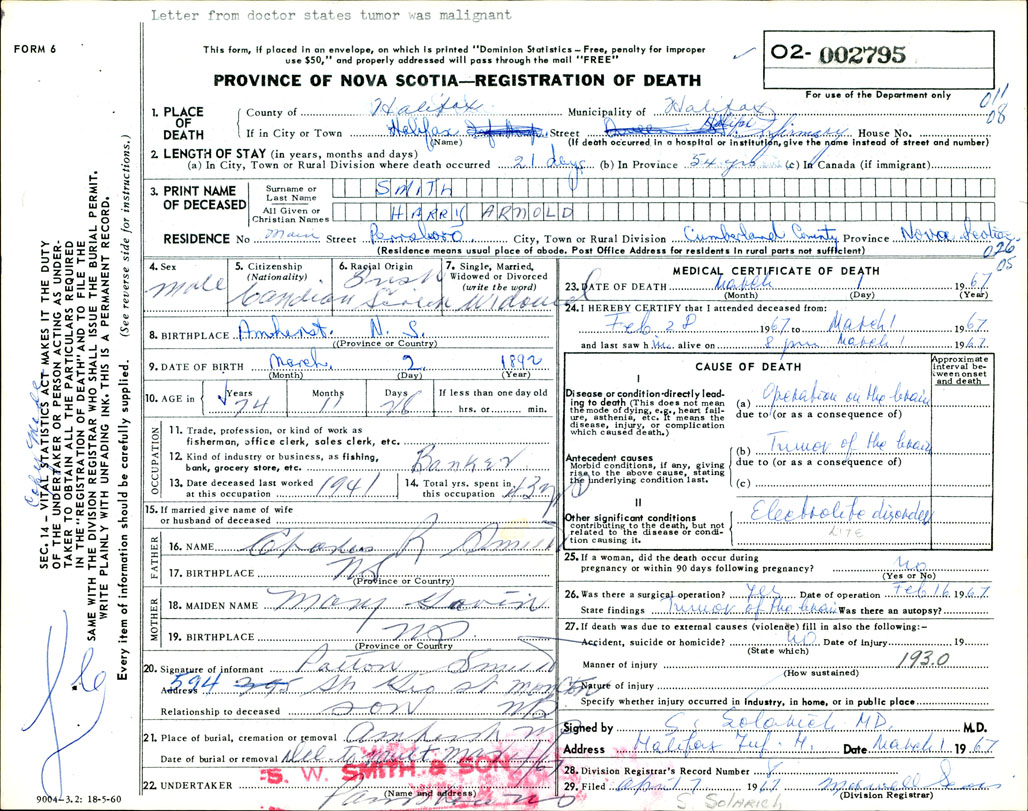 Letter from doctor states tumor was malignant
FORM 6
This form, if placed in an envelope, on which is printed "Dominion Statistics – Free, penalty for improper
use $50," and properly addressed will pass through the mail "FREE"
PROVINCE OF NOVA SCOTIA—REGISTRATION OF DEATH
O2- 002795
For use of the Department only
011
08
1. PLACE OF DEATH
County of Halifax Municipality of Halifax
If in City or Town Halifax Street Halifax Infirmary House No.
(Name) (If death occurred in a hospital or institution, give the name instead of street and number)
2. LENGTH OF STAY (in years, months and days)
(a) In City, Town or Rural Division where death occurred 21 days (b) In Province 54 yrs (c) In Canada (if immigrant)
3. PRINT NAME OF DECEASED
Surname or Last Name SMITH
All Given or Christian Names HARRY ARNOLD
RESIDENCE No Main Street Parrsboro City, Town or Rural Division Cumberland County Province Nova Scotia
(Residence means usual place of abode. Post Office Address for residents in rural parts not sufficient)
026
05
4. Sex Male
5. Citizenship (Nationality) Candian
6. Racial Origin
7. Single, Married, Widowed or Divorced (write the word) Widowed
8. BIRTHPLACE Amherst. N.S.
(Province or Country)
9. DATE OF BIRTH March 2 1892
(Month) (Day) (Year)
10. AGE in Years 74 Months 11 Days 26 If less than one day old
hrs. or min.
OCCUPATION
11. Trade, profession, or kind of work as
fisherman, office clerk, sales clerk, etc.
12. Kind of industry or business, as fishing,
bank, grocery store, etc. Banker
13. Date deceased last worked
at this occupation 1941
14. Total yrs. spent in
this occupation
15. If married give name of wife
or husband of deceased
FATHER
16. NAME R Smith
17. BIRTHPLACE NS
(Province or Country)
MOTHER
18. MAIDEN NAME Mary
19. BIRTHPLACE NS
(Province or Country)
20. Signature of informant Smith
Address 594 St
Relationship to deceased son NB
21. Place of burial, cremation or removal Amherst
Date of burial or removal
S. W. SMITH & SON
22. UNDERTAKER
(Name and address)
9004–3.2: 18-5-60
MEDICAL CERTIFICATE OF DEATH
23. DATE OF DEATH March 1 1967
(Month) (Day) (Year)
24. I HEREBY CERTIFY that I attended deceased from:
Feb 28 1967 to March 1 1967
and last saw him alive on 8 pm March 1 1967
CAUSE OF DEATH
Approximate interval between onset and death
I
Disease or condition directly leading to death (This does not mean the mode of dying, e.g., heart failure, asthenia, etc. It means the disease, injury, or complication which caused death.)
(a) Operation on the brain
due to (or as a consequence of)
Antecedent causes
Morbid conditions, if any, giving rise to the above cause, stating the underlying condition last.
(b) Tumor of the brain
due to (or as a consequence of)
(c)
II
Other significant conditions
contributing to the death, but not related to the disease or condition causing it.
Electrolite disorder
LITE
25. If a woman, did the death occur during
pregnancy or within 90 days following pregnancy? no
(Yes or No)
26. Was there a surgical operation? yes Date of operation Feb 16 1967
State findings Tumor of the brain Was there an autopsy?
27. If death was due to external causes (violence) fill in also the following:–
Accident, suicide or homicide? no Date of injury 19
(State which)
Manner of injury 193.0
(How sustained)
Nature of injury
Specify whether injury occurred in industry, in home, or in public place
Signed by S. Solarich MD. M.D.
Address Halifax Inf. H. Date March 1 1967
28. Division Registrar's Record Number 8
29. Filed April 7 1967
(Division Registrar)
S. Solarich
SEC. 14 – VITAL STATISTICS ACT MAKES IT THE DUTY
OF THE UNDERTAKER OR PERSON ACTING AS UNDERTAKER TO OBTAIN ALL THE PARTICULARS REQUIRED
IN THE "REGISTRATION OF DEATH" AND TO FILE THE
SAME WITH THE DIVISION REGISTRAR WHO SHALL ISSUE THE BURIAL PERMIT.
WRITE PLAINLY WITH UNFADING INK. THIS IS A PERMANENT RECORD.
Every item of information should be carefully supplied. (See reverse side for instructions.)
Copy Made